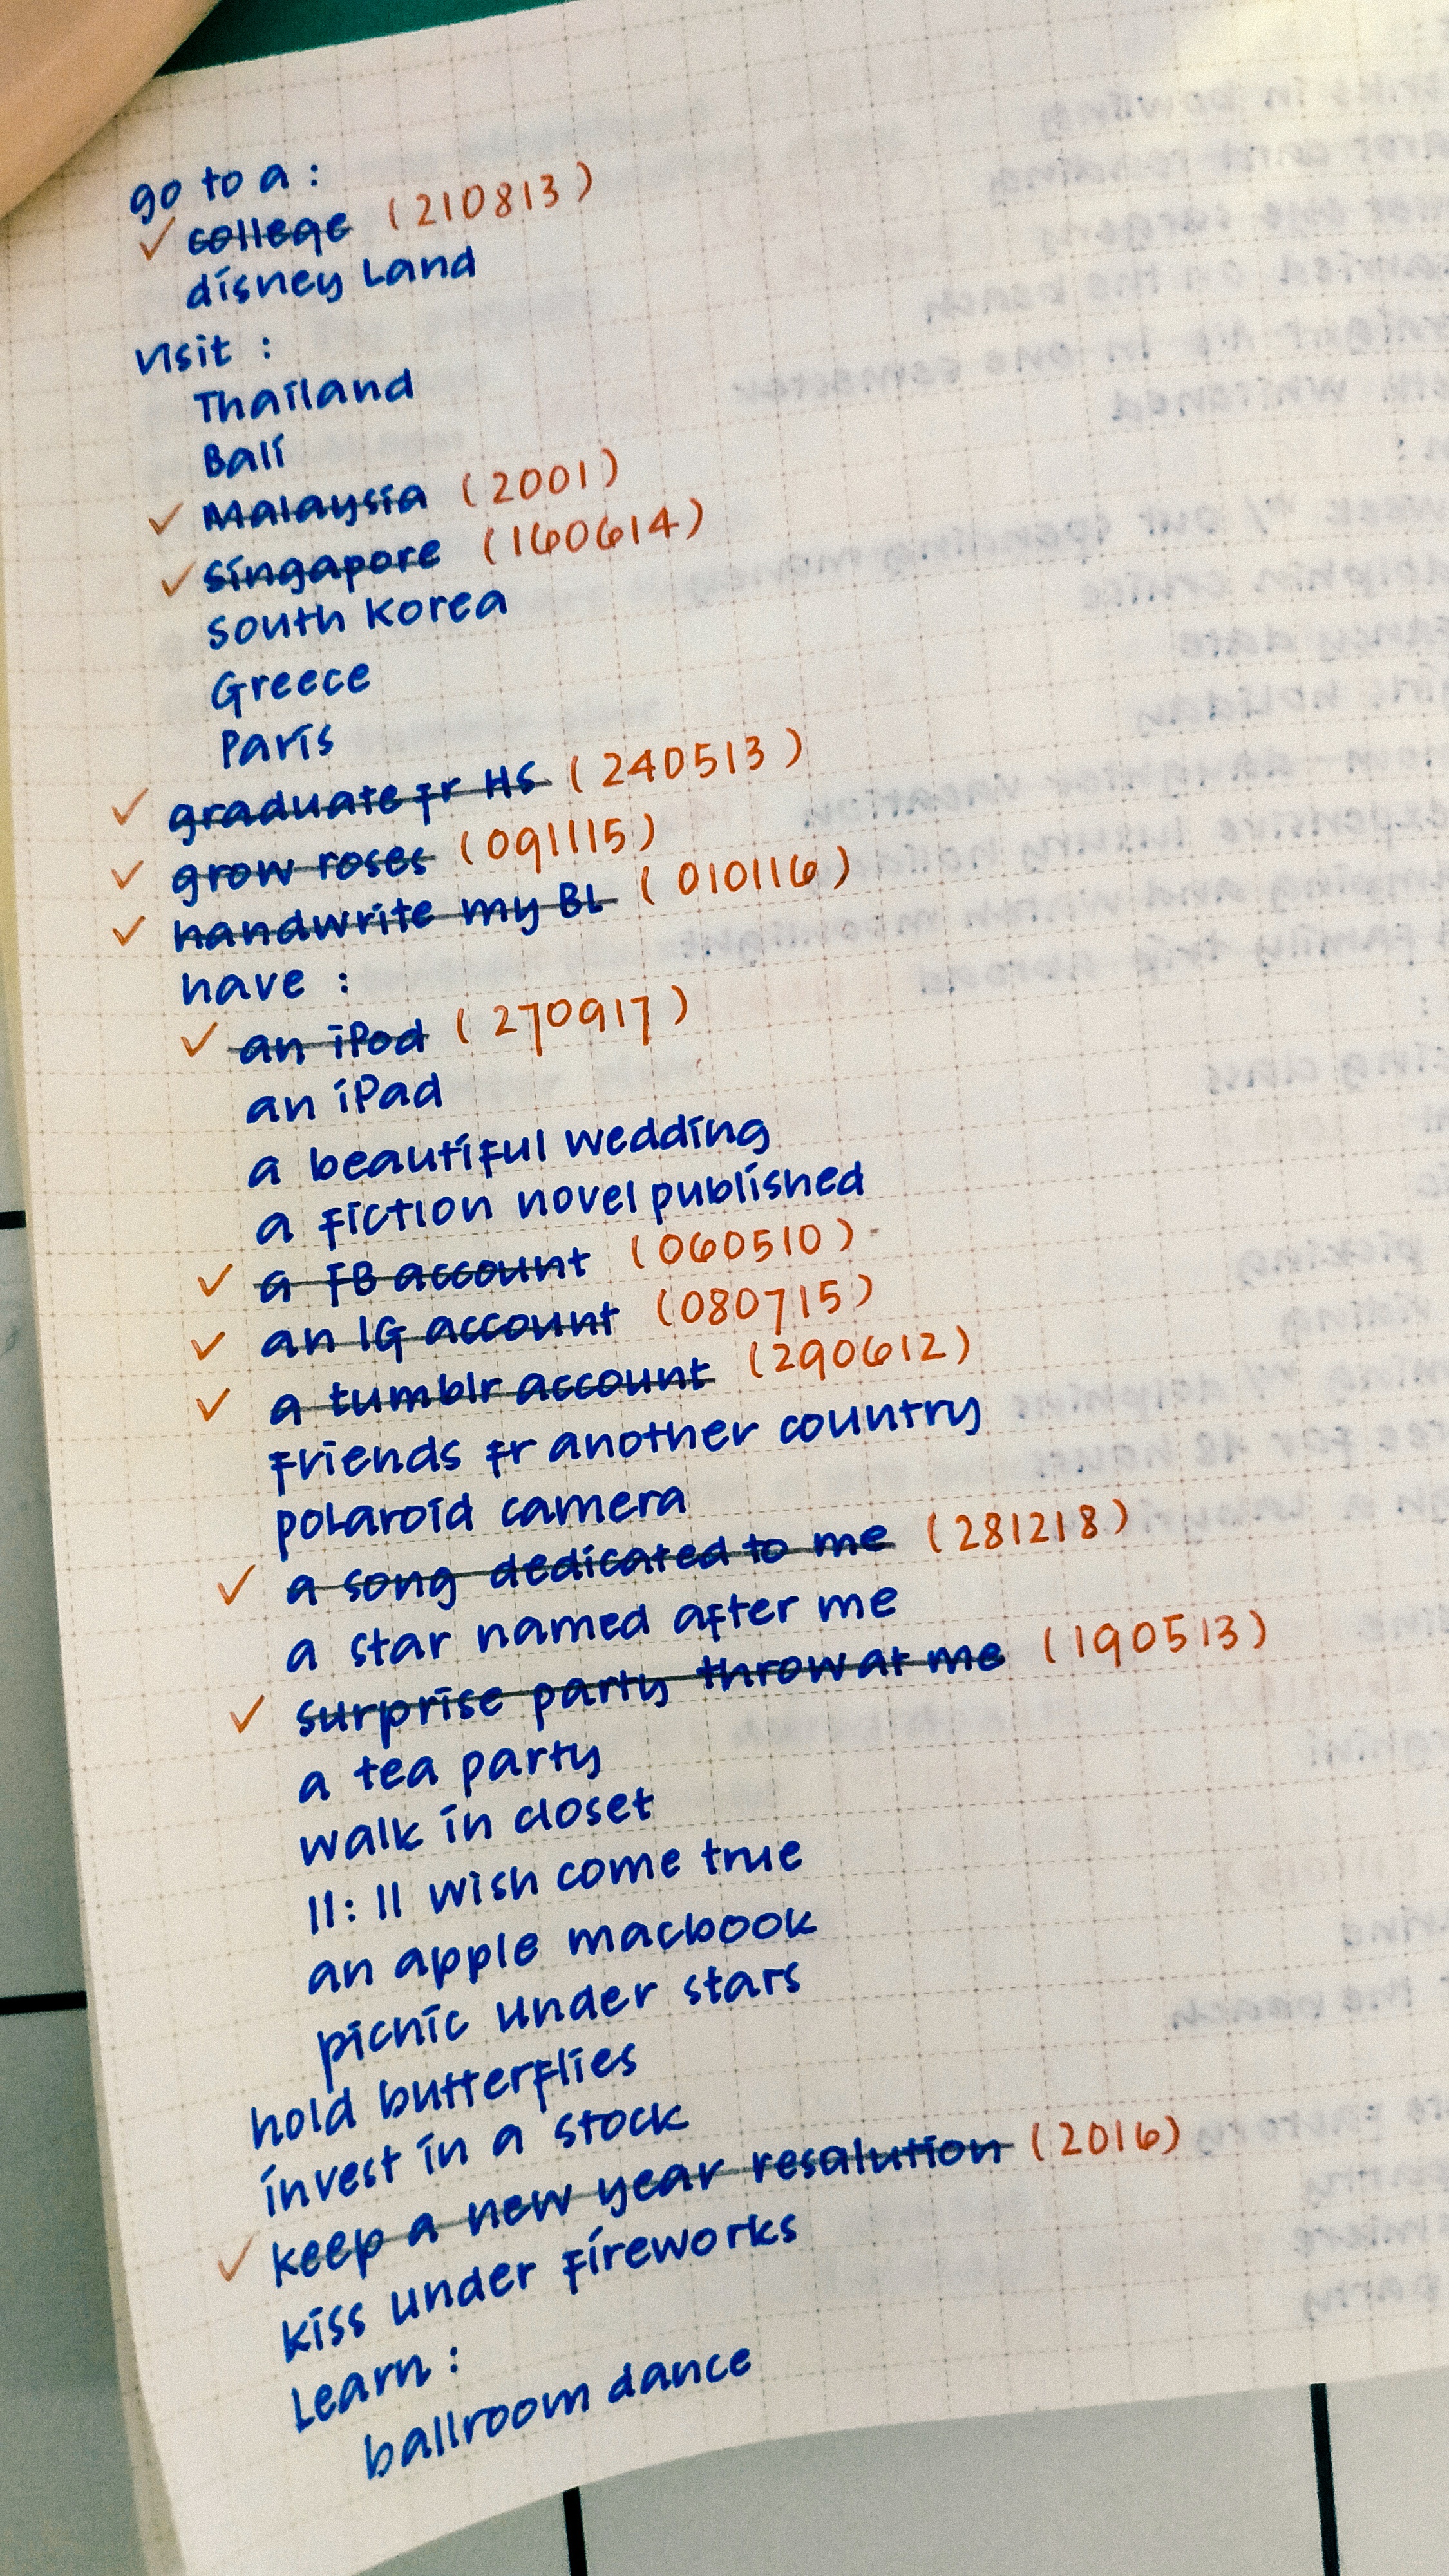 go to a :
✓ college (210813)
disney Land
visit :
Thailand
Bali
✓ Malaysia (2001)
✓ Singapore (160614)
South Korea
Greece
Paris
✓ graduate fr HS (240513)
✓ grow roses (091115)
✓ handwrite my BL (010116)
have :
✓ an iPod (270917)
an iPad
a beautiful wedding
a fiction novel published
✓ a FB account (060510)
✓ an IG account (080715)
✓ a tumblr account (290612)
friends fr another country
polaroid camera
✓ a song dedicated to me (281218)
a star named after me
✓ surprise party throw at me (190513)
a tea party
walk in closet
11:11 wish come true
an apple macbook
picnic under stars
hold butterflies
invest in a stock
✓ keep a new year resalution (2016)
kiss under fireworks
Learn :
ballroom dance